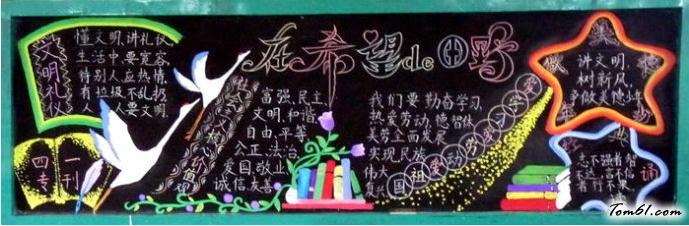 文明礼仪
懂文明,讲礼仪,
生活中要宽容,
待别人应热情,
有垃圾不乱扔
人人要文明,
四专
一刊
在希望de田野
社会主义核心价值观
富强,民主,
文明,和谐
自由,平等,
公正,法治,
爱国,敬业
诚信,友善
我们要勤奋学习,
热爱劳动,德智体
美劳全面发展
实现民族
伟大
复兴
讲文明,
树新风,
争做美德少年
志不强者智
不达,言不信
者行不果。
Tom61.com